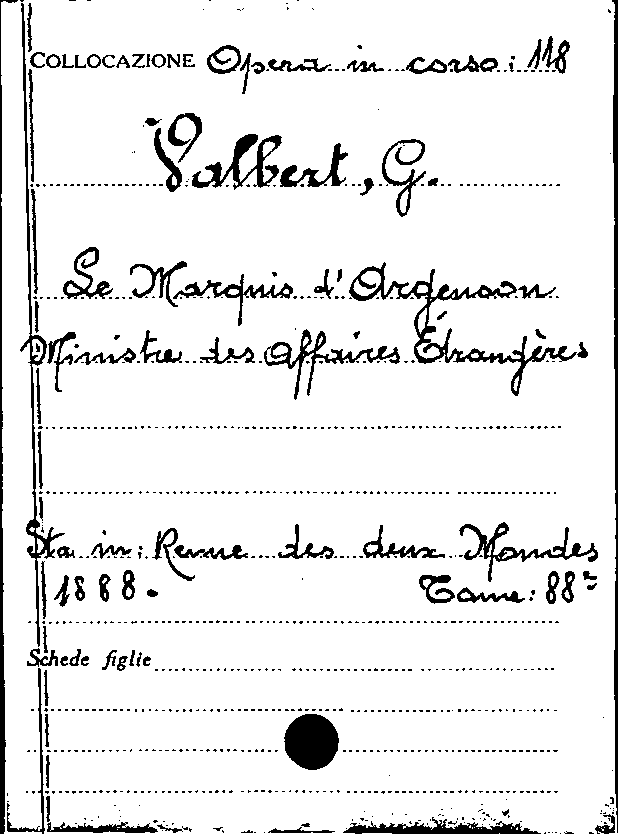 COLLOCAZIONE Opera in corso: 118
Valbert, G.
Le Marquis d'Argenson
Ministre des Affaires Étrangères
Sta in: Revue des deux Mondes
1888. Tome: 88º
Schede figlie